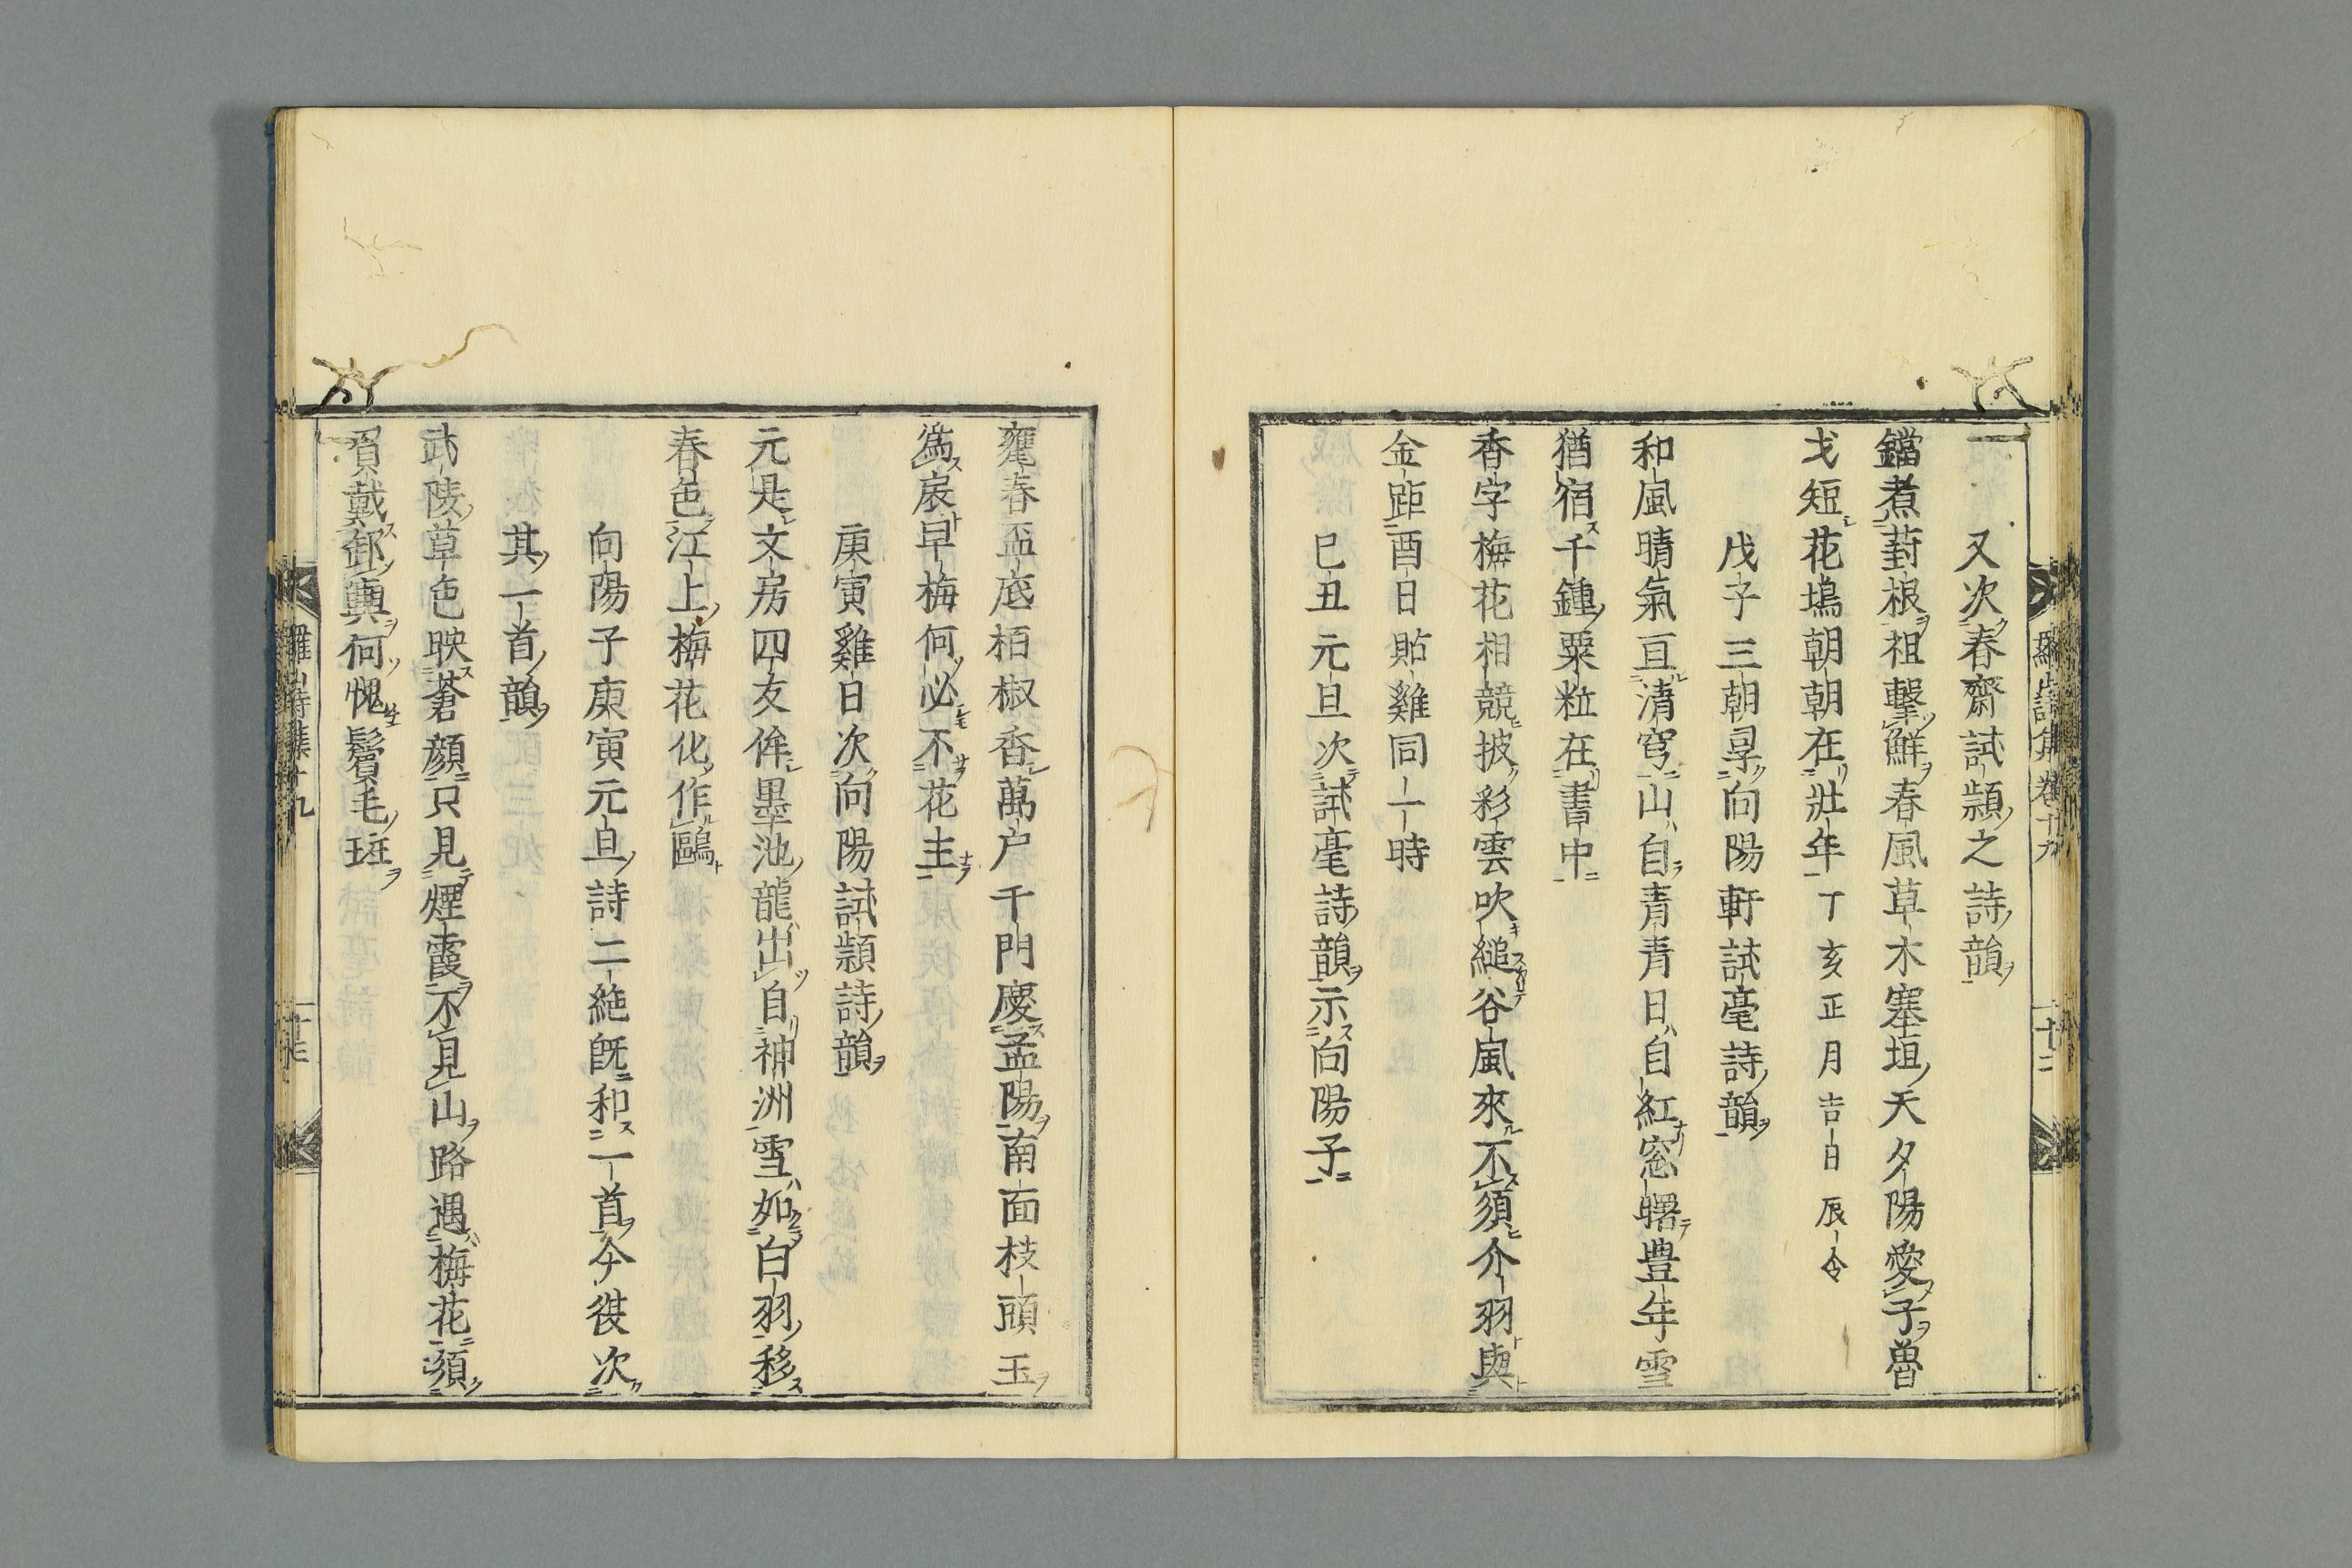 又次春齋試頴之詩韻
鐺煮葑根祖擊鮮春風草木塞垣天夕陽愛子魯
戈短花塢朝朝在壯年丁亥正月吉日辰令
戊子三朝尋向陽軒試毫詩韻
和風晴氣亘清穹山自青青日自紅窓曙豊年雪
猶宿千鍾粟粒在書中
香字梅花相競披彩雲吹縋谷風來不須介羽與
金距酉日貼雞同一時
巳丑元旦次試毫詩韻示向陽子
甕春盃底栢椒香萬户千門慶孟陽南面枝頭玉
爲扆早梅何必不花主
庚寅雞日次向陽試頴詩韻
元是文房四友侔墨池龍出自神洲雪如白羽移
春色江上梅花化作鷗
向陽子庚寅元旦詩二絶旣和一首今從次
其一首韻
武陵草色映蒼顔只見煙霞不見山路遇梅花須
頂戴卸輿何愧鬢毛斑
羅山詩集十九